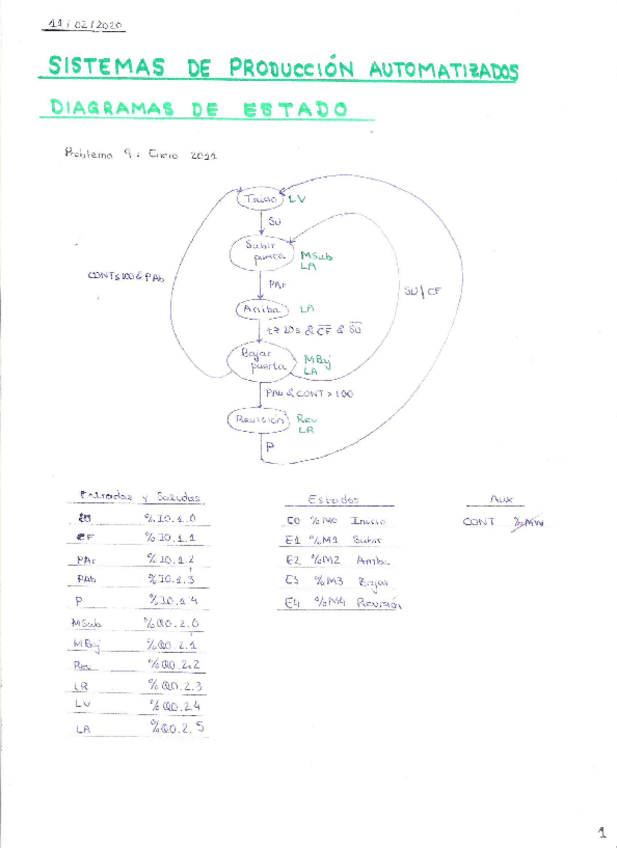 11/02/2020
SISTEMAS DE PRODUCCIÓN AUTOMATIZADOS
DIAGRAMAS DE ESTADO
Problema 9: Enero 2011
Inicio LV
SU
Subir puerta MSub LA
PAr
CONT≤100 & PAb
SU/CF
Arriba LA
t≥20s & C̅F̅ & S̅U̅
Bajar puerta MBaj LA
PAb & CONT > 100
Revisión Rev LR
P
Entradas y Salidas
SU %I0.1.0
CF %I0.1.1
PAr %I0.1.2
PAb %I0.1.3
P %I0.1.4
MSub %Q0.2.0
MBaj %Q0.2.1
Rev %Q0.2.2
LR %Q0.2.3
LV %Q0.2.4
LA %Q0.2.5
Estados
E0 %M0 Inicio
E1 %M1 Subir
E2 %M2 Arriba
E3 %M3 Bajar
E4 %M4 Revisión
Aux
CONT %MW
1